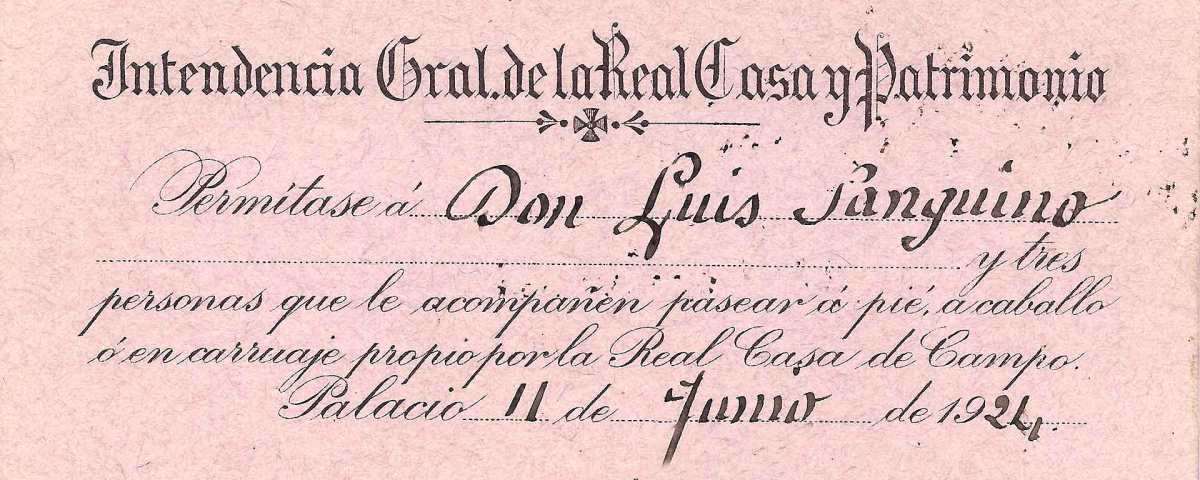 Intendencia Gral. de la Real Casa y Patrimonio
Permítase á Don Luis Sanguino
y tres
personas que le acompañen pasear á pié, á caballo
ó en carruaje propio por la Real Casa de Campo.
Palacio 11 de Junio de 1924,